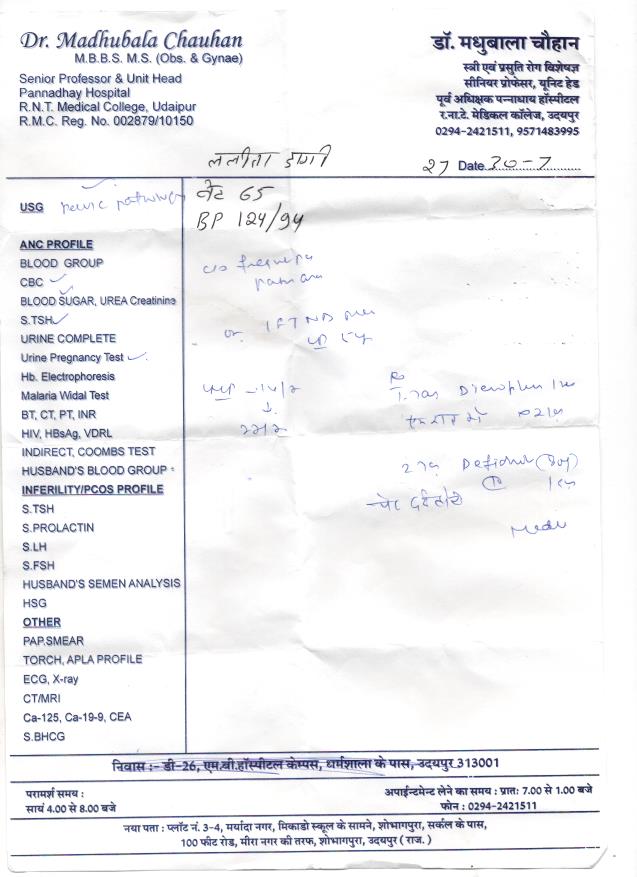 Dr. Madhubala Chauhan
M.B.B.S. M.S. (Obs. & Gynae)
Senior Professor & Unit Head
Pannadhay Hospital
R.N.T. Medical College, Udaipur
R.M.C. Reg. No. 002879/10150
डॉ. मधुबाला चौहान
स्त्री एवं प्रसुति रोग विशेषज्ञ
सीनियर प्रोफेसर, यूनिट हेड
पूर्व अधिक्षक पन्नाधाय हॉस्पीटल
र.ना.टे. मेडिकल कॉलेज, उदयपुर
0294-2421511, 9571483995
ललीता
27 Date 30-7
USG pelvic
वेट 65
BP 124/94
ANC PROFILE
BLOOD GROUP
c/o
CBC
BLOOD SUGAR, UREA Creatinine
S.TSH
URINE COMPLETE
Urine Pregnancy Test
Hb. Electrophoresis
Malaria Widal Test
BT, CT, PT, INR
HIV, HBsAg, VDRL
INDIRECT, COOMBS TEST
HUSBAND'S BLOOD GROUP
INFERILITY/PCOS PROFILE
S.TSH
S.PROLACTIN
S.LH
S.FSH
HUSBAND'S SEMEN ANALYSIS
HSG
OTHER
PAP.SMEAR
TORCH, APLA PROFILE
ECG, X-ray
CT/MRI
Ca-125, Ca-19-9, CEA
S.BHCG
निवास :- डी-26, एम.बी.हॉस्पीटल केम्पस, धर्मशाला के पास, उदयपुर 313001
परामर्श समय :
सायं 4.00 से 8.00 बजे
अपाईन्टमेन्ट लेने का समय : प्रातः 7.00 से 1.00 बजे
फोन : 0294-2421511
नया पता : प्लॉट नं. 3-4, मर्यादा नगर, मिकाडो स्कूल के सामने, शोभागपुरा, सर्कल के पास,
100 फीट रोड, मीरा नगर की तरफ, शोभागपुरा, उदयपुर ( राज. )